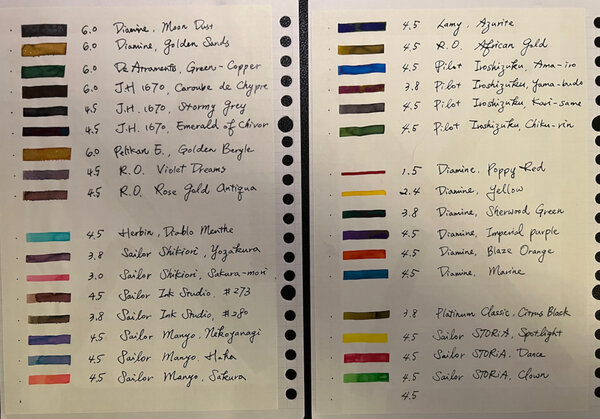 6.0 Diamine, Moon Dust
6.0 Diamine, Golden Sands
6.0 De Atramento, Green-Copper
6.0 J.H. 1670, Caroube de Chypre
4.5 J.H. 1670, Stormy Grey
4.5 J.H. 1670, Emerald of Chivor
6.0 Pelikan E., Golden Beryle
4.5 R.O. Violet Dreams
4.5 R.O. Rose Gold Antiqua
4.5 Herbin, Diablo Menthe
3.8 Sailor Shikiori, Yozakura
3.0 Sailor Shikiori, Sakura-mori
4.5 Sailor Ink Studio, #273
3.8 Sailor Ink Studio, #280
4.5 Sailor Manyo, Nekoyanagi
4.5 Sailor Manyo, Haha
4.5 Sailor Manyo, Sakura
4.5 Lamy, Azurite
4.5 R.O. African Gold
4.5 Pilot Iroshizuku, Ama-iro
3.8 Pilot Iroshizuku, Yama-budo
4.5 Pilot Iroshizuku, Kiri-same
4.5 Pilot Iroshizuku, Chiku-rin
1.5 Diamine, Poppy Red
2.4 Diamine, Yellow
3.8 Diamine, Sherwood Green
4.5 Diamine, Imperial purple
4.5 Diamine, Blaze Orange
4.5 Diamine, Marine
3.8 Platinum Classic, Citrus Black
4.5 Sailor STORiA, Spotlight
4.5 Sailor STORiA, Dance
4.5 Sailor STORiA, Clown
4.5